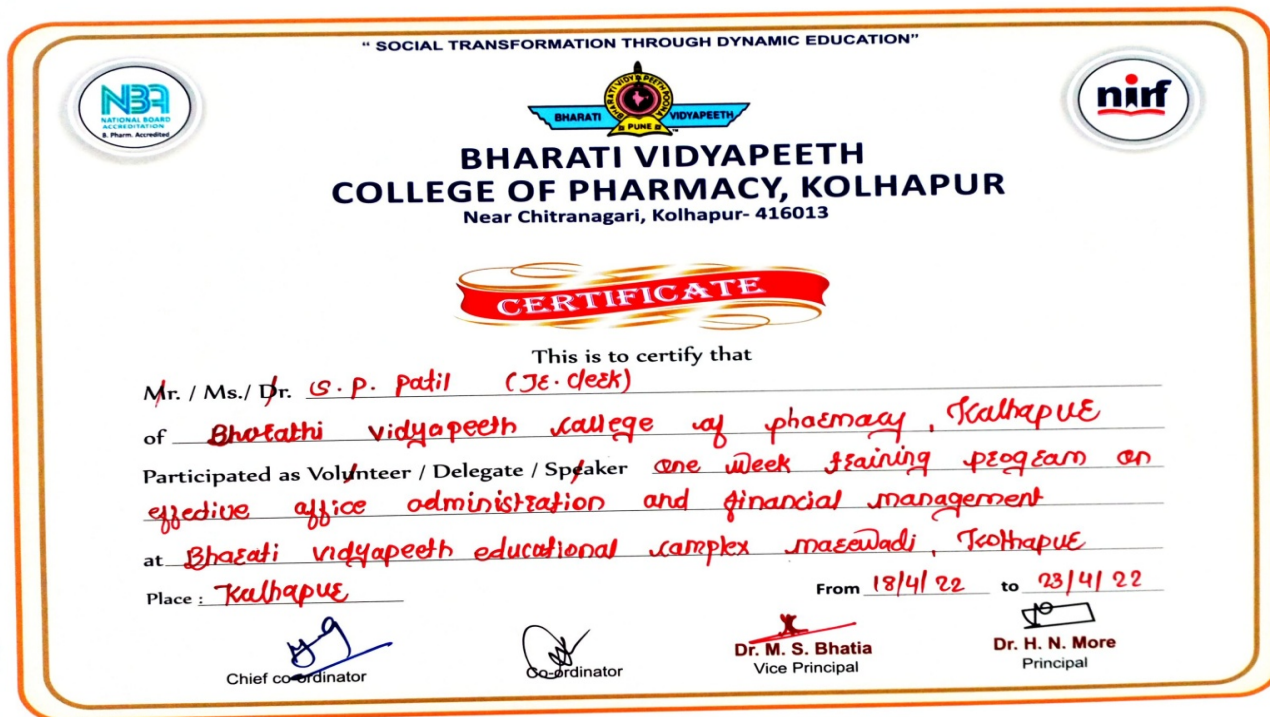 “ SOCIAL TRANSFORMATION THROUGH DYNAMIC EDUCATION”
NBA
NATIONAL BOARD
ACCREDITATION
B. Pharm. Accredited
BHARATI VIDYAPEETH POONA
BHARATI VIDYAPEETH
PUNE
TM
nirf
BHARATI VIDYAPEETH
COLLEGE OF PHARMACY, KOLHAPUR
Near Chitranagari, Kolhapur- 416013
CERTIFICATE
This is to certify that
Mr. / Ms./ Dr. S. P. Patil (Jr. clerk)
of Bharathi vidyapeeth college of pharmacy, Kolhapur
Participated as Volunteer / Delegate / Speaker one week training program on
effective office administration and financial management
at Bharati vidyapeeth educational complex morewadi, Kolhapur
Place : Kolhapur From 18/4/22 to 23/4/22
Chief co-ordinator Co-ordinator Dr. M. S. Bhatia Dr. H. N. More
Vice Principal Principal